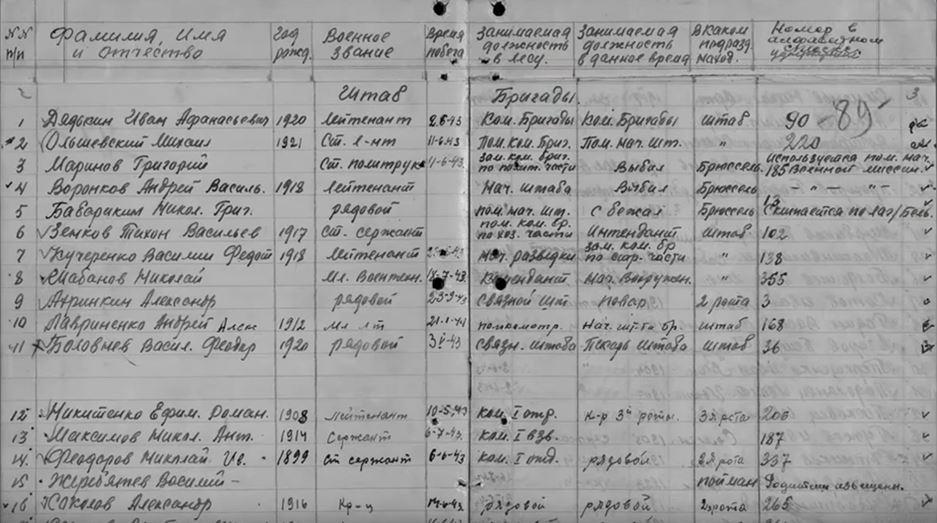 NN п/п Фамилия, Имя и отчество Год рожд. Военное звание Время побега Занимаемая должность в лесу. Занимаемая должность в данное время В каком подразд. наход. Номер в алфавитном списке
2 Штаб Бригады. 3
1 Дядькин Иван Афанасьевич 1920 Лейтенант Ком. Бригады Ком. Бригады штаб 90 -89-
2 Ольшевский Михаил 1921 Ст. л-нт 11-6.43 Пом. ком. бриг. Пом. нач. шт. " 220
3 Маринов Григорий Ст. политрук 11-6-43 зам. ком. бриг. по полит. части Выбыл Брюссель Используется пом. нач. 185 военной миссии.
4 Воронков Андрей Василь. 1918 Лейтенант Нач. штаба Выбыл Брюссель - " - " -
5 Баварикин Микол. Григ. рядовой пом. нач. шт. Сбежал Брюссель 13 Скитается по лаг/Бельг.
6 Зенков Тихон Васильев 1917 Ст. сержант пом. ком. бр. по хоз. части Интендант штаб 102
7 Кучеренко Василий Федот 1918 Лейтенант нач. разведки зам. ком. бр по стр. части " 138
8 Шабанов Николай Мл. Воентехн. 18-7-43 Комендант Нач. Вооружен. " 355
9 Александр рядовой 23-9-43 Связной шт. повар 2 рота 3
10 Лавриненко Андрей Алек 1912 Мл лт 21-1-44 Нач. шт-ба бр. штаб 168
11 Боловнев Васил. Феодор 1920 рядовой 3 43 связн. штаба Писарь штаба штаб 36
12 Никитенко Ефим. Роман. 1908 Лейтенант 10-5.43 ком. I отр. к-р 3й роты. 3я рота 205
13 Максимов Микол. Ант. 1914 Сержант 6-7-43. ком. I взв. 187
14 Феодоров Николай Ив. 1899 Ст сержант 6-6-43 ком. I отд. рядовой 2я рота 337
15 Жеребятев Василий - пойман Родители извещены.
16 Соколов Александр 1916 Кр-ц 14-6-43 рядовой рядовой 2 рота 265